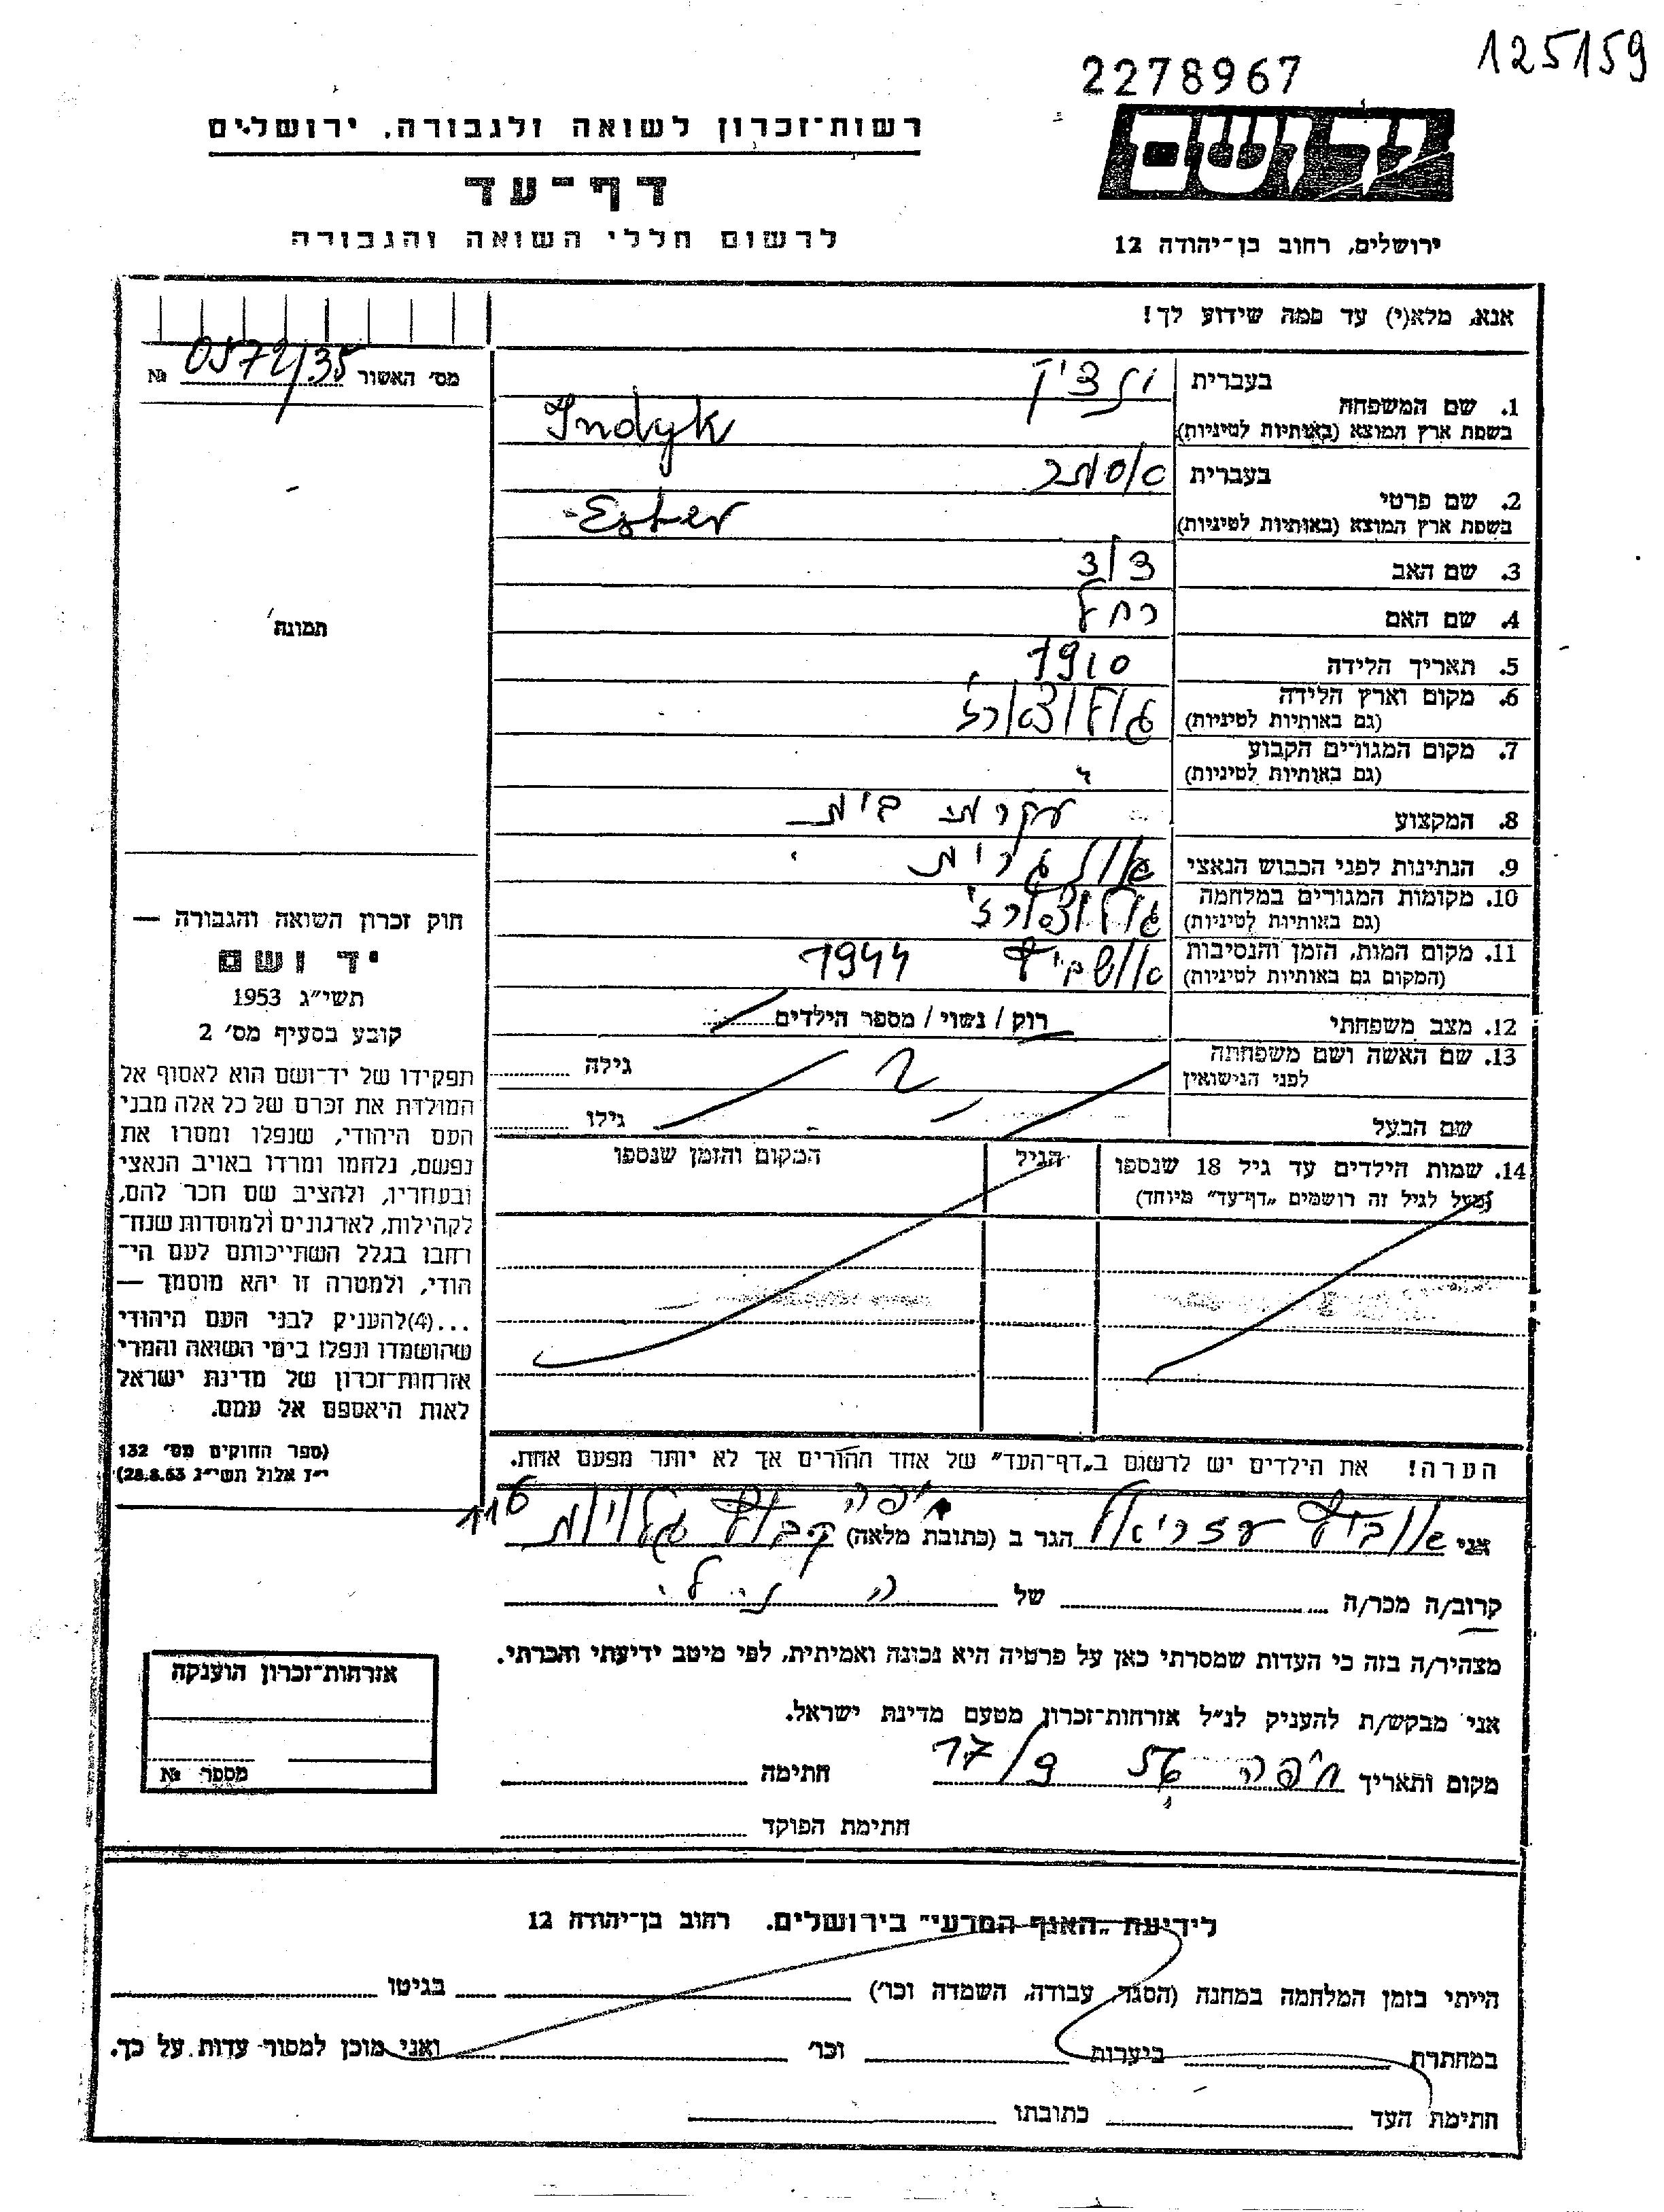 125159
2278967
יד ושם
רשות־זכרון לשואה ולגבורה, ירושלים
דף־עד
לרשום חללי השואה והגבורה
ירושלים, רחוב בן־יהודה 12
אנא, מלא(י) עד כמה שידוע לך!
מס׳ האשור 0572/35 №
1. שם המשפחה
בעברית
בשפת ארץ המוצא (באותיות לטיניות) Indyk
2. שם פרטי
בעברית אסתר
בשפת ארץ המוצא (באותיות לטיניות) Ester
3. שם האב
4. שם האם רחל
5. תאריך הלידה 1910
6. מקום וארץ הלידה
(גם באותיות לטיניות)
7. מקום המגורים הקבוע
(גם באותיות לטיניות) "
8. המקצוע עקרת בית
9. הנתינות לפני הכבוש הנאצי
10. מקומות המגורים במלחמה
(גם באותיות לטיניות)
11. מקום המות, הזמן והנסיבות 1944
(המקום גם באותיות לטיניות)
12. מצב משפחתי רוק / נשוי / מספר הילדים
13. שם האשה ושם משפחתה
לפני הנישואין
גילה
שם הבעל
גילו
14. שמות הילדים עד גיל 18 שנספו
(מעל לגיל זה רושמים „דף־עד" מיוחד)
הגיל
המקום והזמן שנספו
הערה! את הילדים יש לרשום ב„דף־העד" של אחד ההורים אך לא יותר מפעם אחת.
תמונה
חוק זכרון השואה והגבורה —
יד ושם
תשי״ג 1953
קובע בסעיף מס׳ 2
תפקידו של יד־ושם הוא לאסוף אל
המולדת את זכרם של כל אלה מבני
העם היהודי, שנפלו ומסרו את
נפשם, נלחמו ומרדו באויב הנאצי
ובעוזריו, ולהציב שם וזכר להם,
לקהילות, לארגונים ולמוסדות שנח־
רחבו בגלל השתייכותם לעם הי־
הודי, ולמטרה זו יהא מוסמך —
...(4)להעניק לבני העם היהודי
שהושמדו ונפלו בימי השואה והמרי
אזרחות־זכרון של מדינת ישראל
לאות היאספם אל עמם.
(ספר החוקים מס׳ 132
י״ז אלול תשי״ג 28.8.53)
אני עזריאל הגר ב (כתובת מלאה) חיפה קבוץ גלויות 116
קרוב/ה מכר/ה של הנ״ל
מצהיר/ה בזה כי העדות שמסרתי כאן על פרטיה היא נכונה ואמיתית, לפי מיטב ידיעתי והכרתי.
אני מבקש/ת להעניק לנ״ל אזרחות־זכרון מטעם מדינת ישראל.
מקום ותאריך חיפה 17/9 56 חתימה
חתימת הפוקד
אזרחות־זכרון הוענקה
מספר №
לידיעת „האגף המדעי" בירושלים. רחוב בן־יהודה 12
הייתי בזמן המלחמה במחנה (הסגר, עבודה, השמדה וכו׳) בגיטו
במחתרת ביערות וכו׳ ואני מוכן למסור עדות על כך.
חתימת העד כתובתו